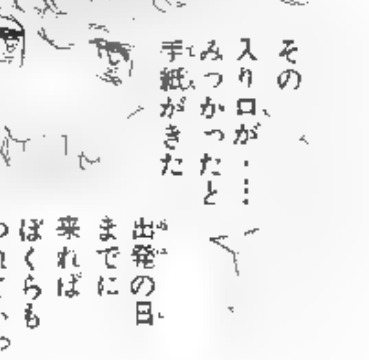 その
入り口が…
みつかったと
手紙がきた
出発の日
までに
来れば
ぼくらも